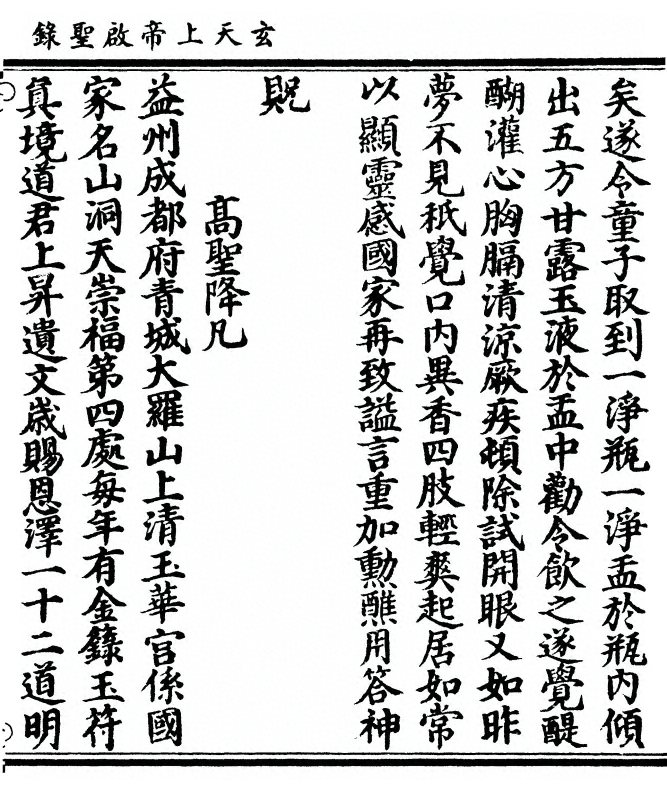 玄天上帝啟聖錄
矣遂令童子取到一淨瓶一淨盂於瓶內傾
出五方甘露玉液於盂中勸令飲之遂覺醍
醐灌心胸膈清涼厥疾頓除試開眼又如昨
夢不見秖覺口內異香四肢輕爽起居如常
以顯靈感國家再致謚言重加勲醮用答神
貺
高聖降凡
益州成都府青城大羅山上清玉華宮係國
家名山洞天崇福第四處每年有金籙玉符
真境道君上昇遺文歲賜恩澤一十二道明